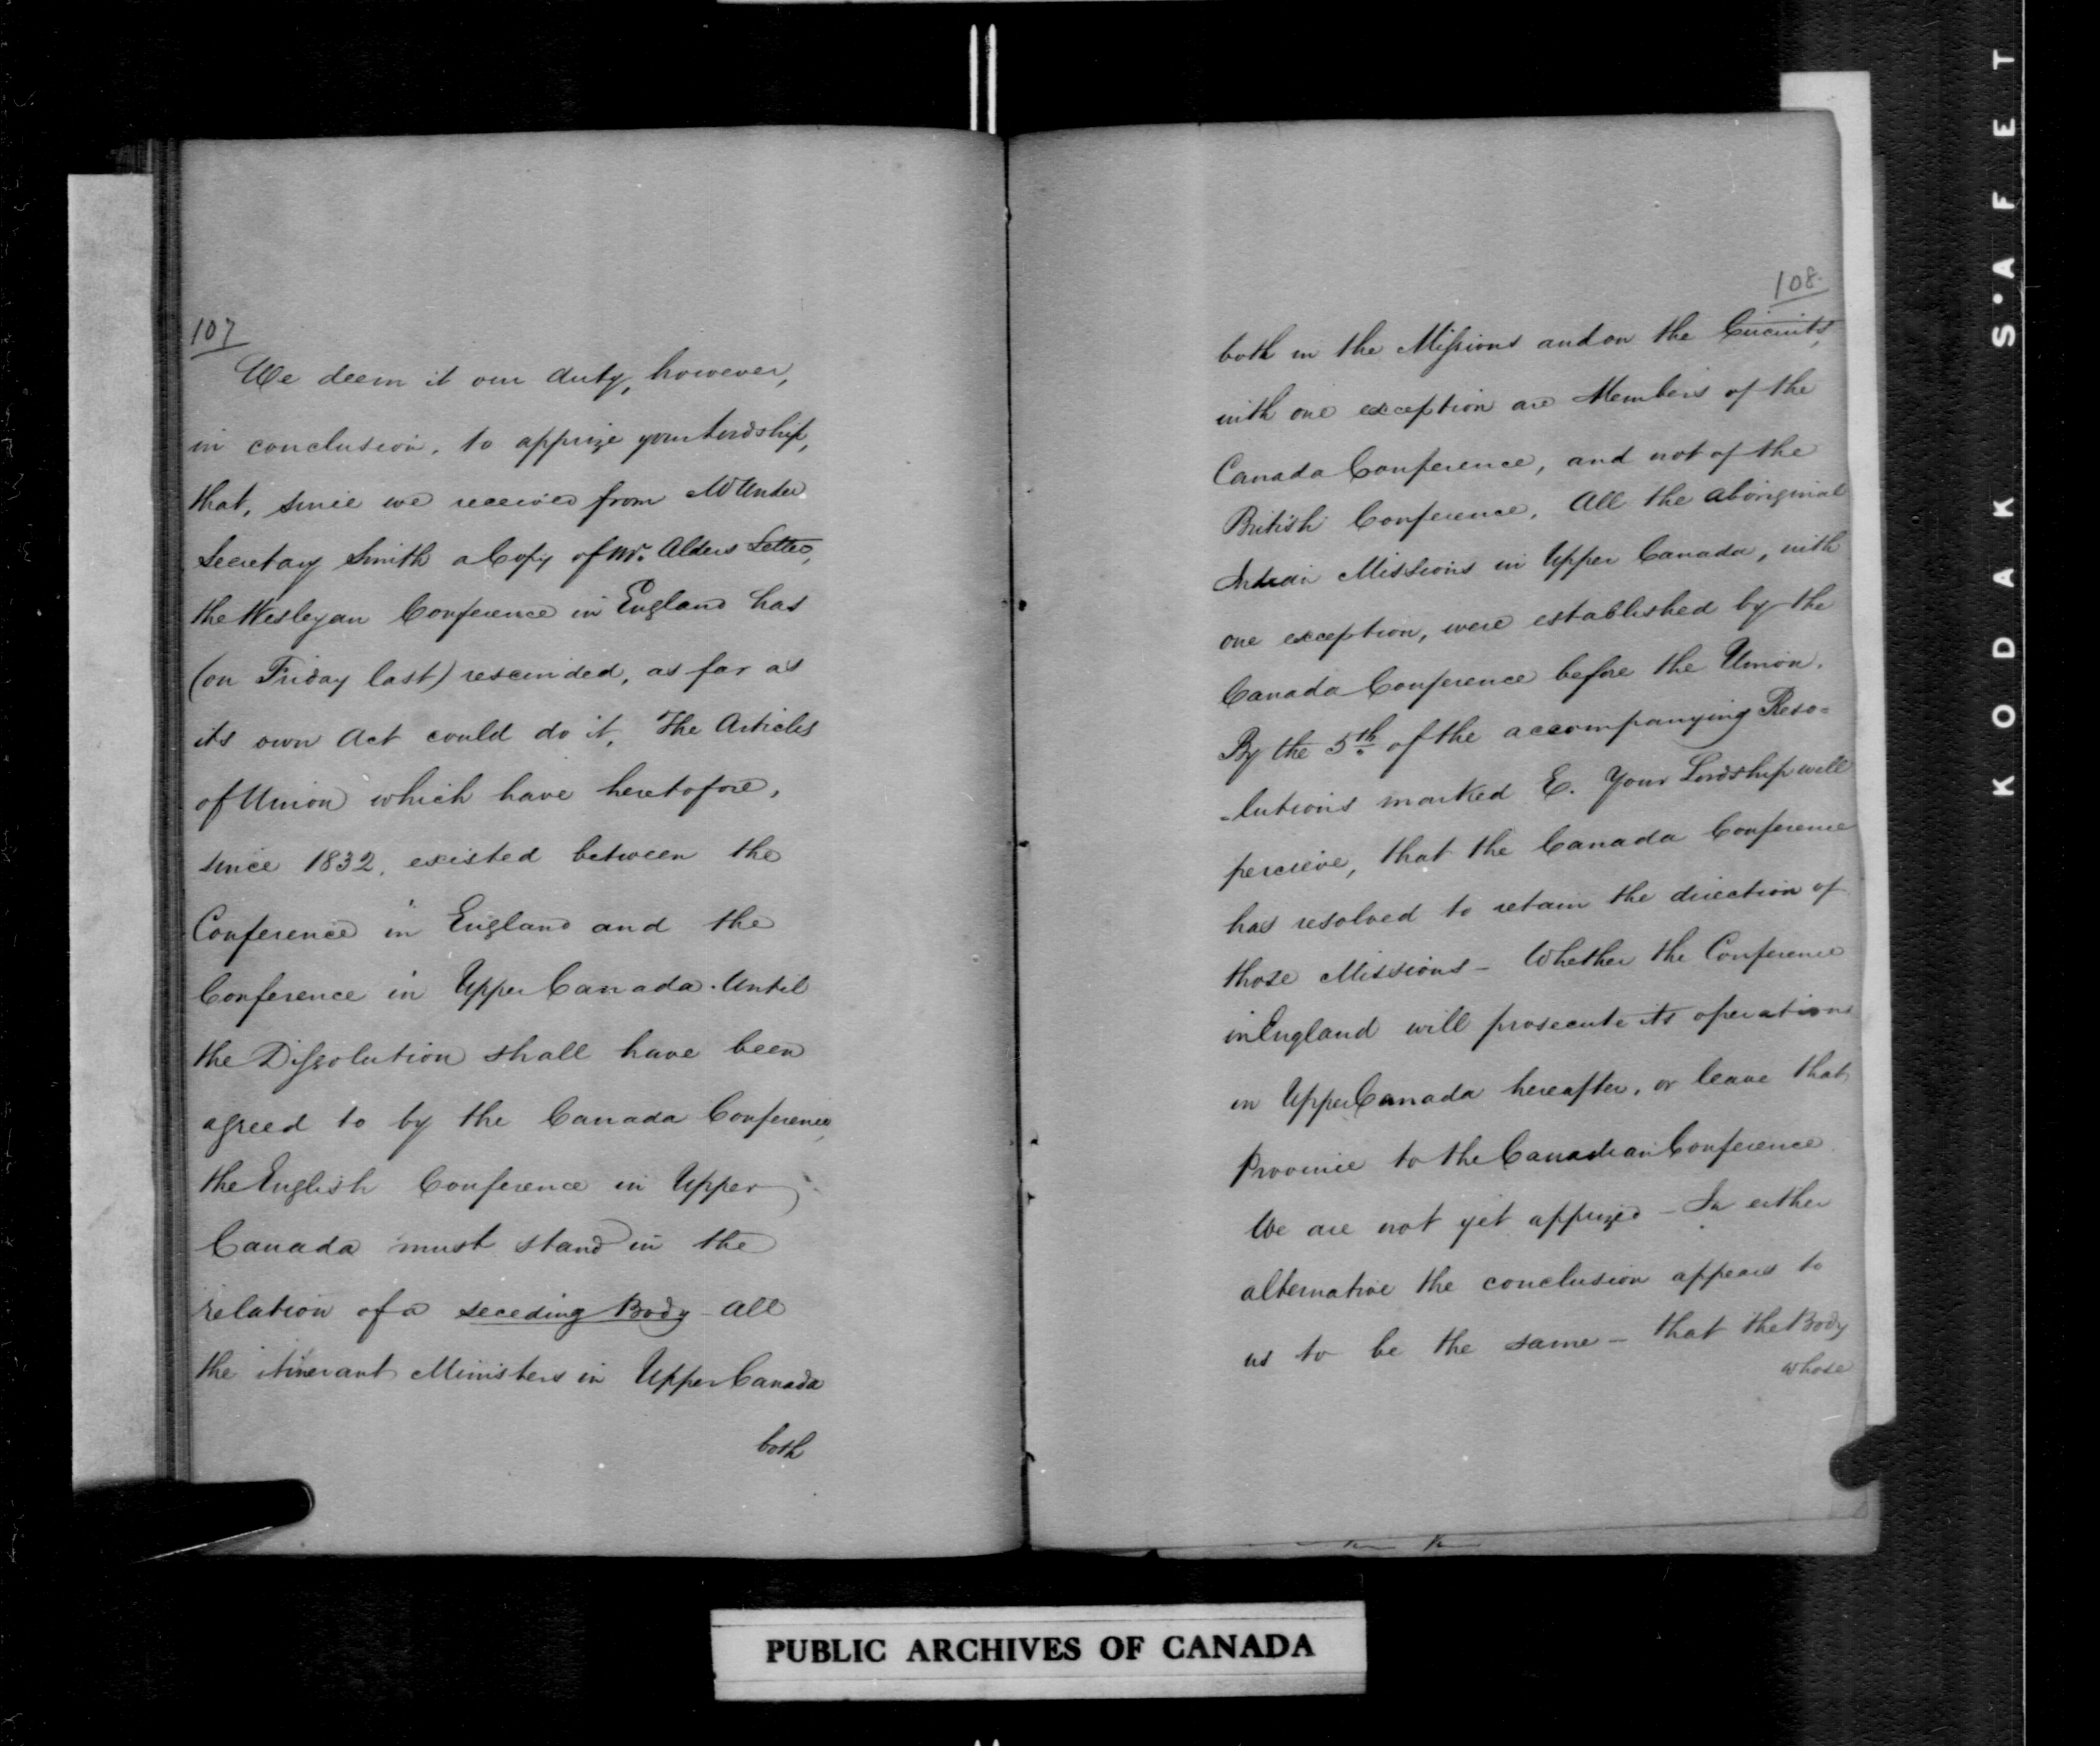 107
We deem it our duty, however,
in conclusion, to apprize your Lordship,
that, since we received from Mr Under
Secretary Smith a Copy of Mr. Alders Letter,
the Wesleyan Conference in England has
(on Friday last) rescinded, as far as
its own Act could do it, The Articles
of Union which have heretofore,
since 1832, existed between the
Conference in England and the
Conference in Upper Canada. Until
the Dissolution shall have been
agreed to by the Canada Conference,
the English Conference in Upper
Canada must stand in the
relation of a seceding Body - All
the itinerant Ministers in Upper Canada
both
108.
both in the Missions and on the Circuits,
with one exception are Members of the
Canada Conference, and not of the
British Conference. All the aboriginal
Indian Missions in Upper Canada, with
one exception, were established by the
Canada Conference before the Union.
By the 5th. of the accompanying Reso=
-lutions marked E. Your Lordship will
percieve, that the Canada Conference
has resolved to retain the direction of
those Missions - Whether the Conference
in England will prosecute its operations
in Upper Canada hereafter, or leave that
Province to the Canadian Conference
We are not yet apprized - In either
alternative the conclusion appears to
us to be the same - that the Body
whose
PUBLIC ARCHIVES OF CANADA
KODAK S·AFET